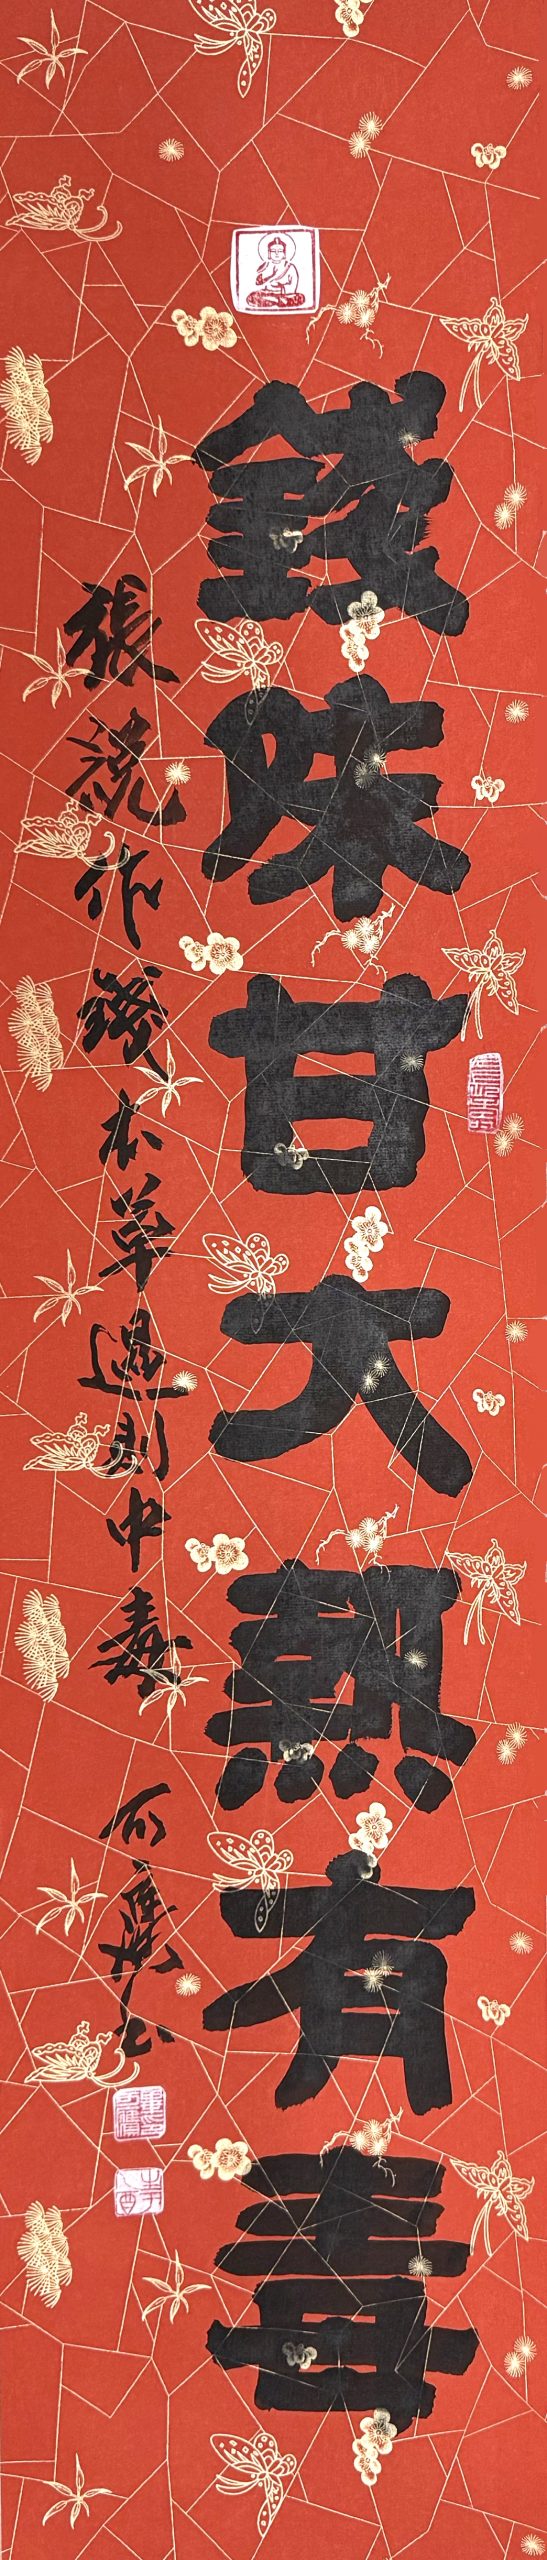 錢味甘大熱有毒
張說作錢本草過則中毒